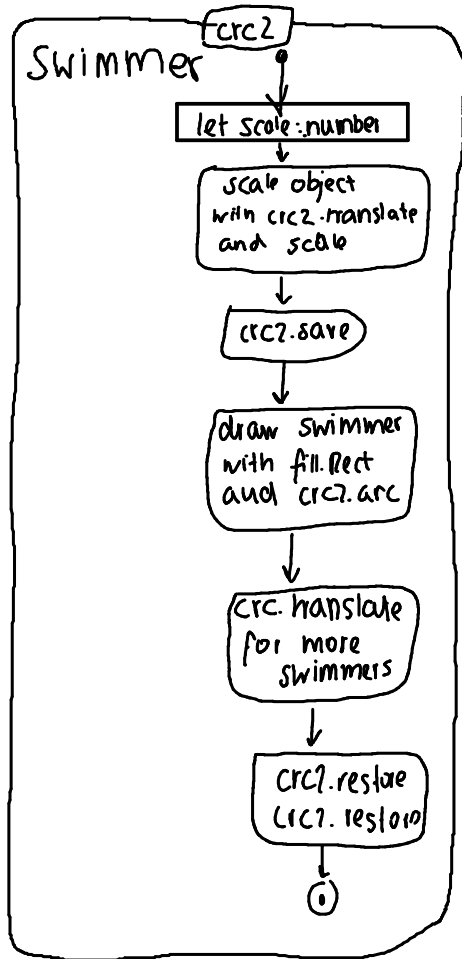 crc2
Swimmer
let scale: number
scale object
with crc2.translate
and scale
crc2.save
draw swimmer
with fill.Rect
and crc2.arc
crc.translate
for more
swimmers
crc2.restore
crc2.restore